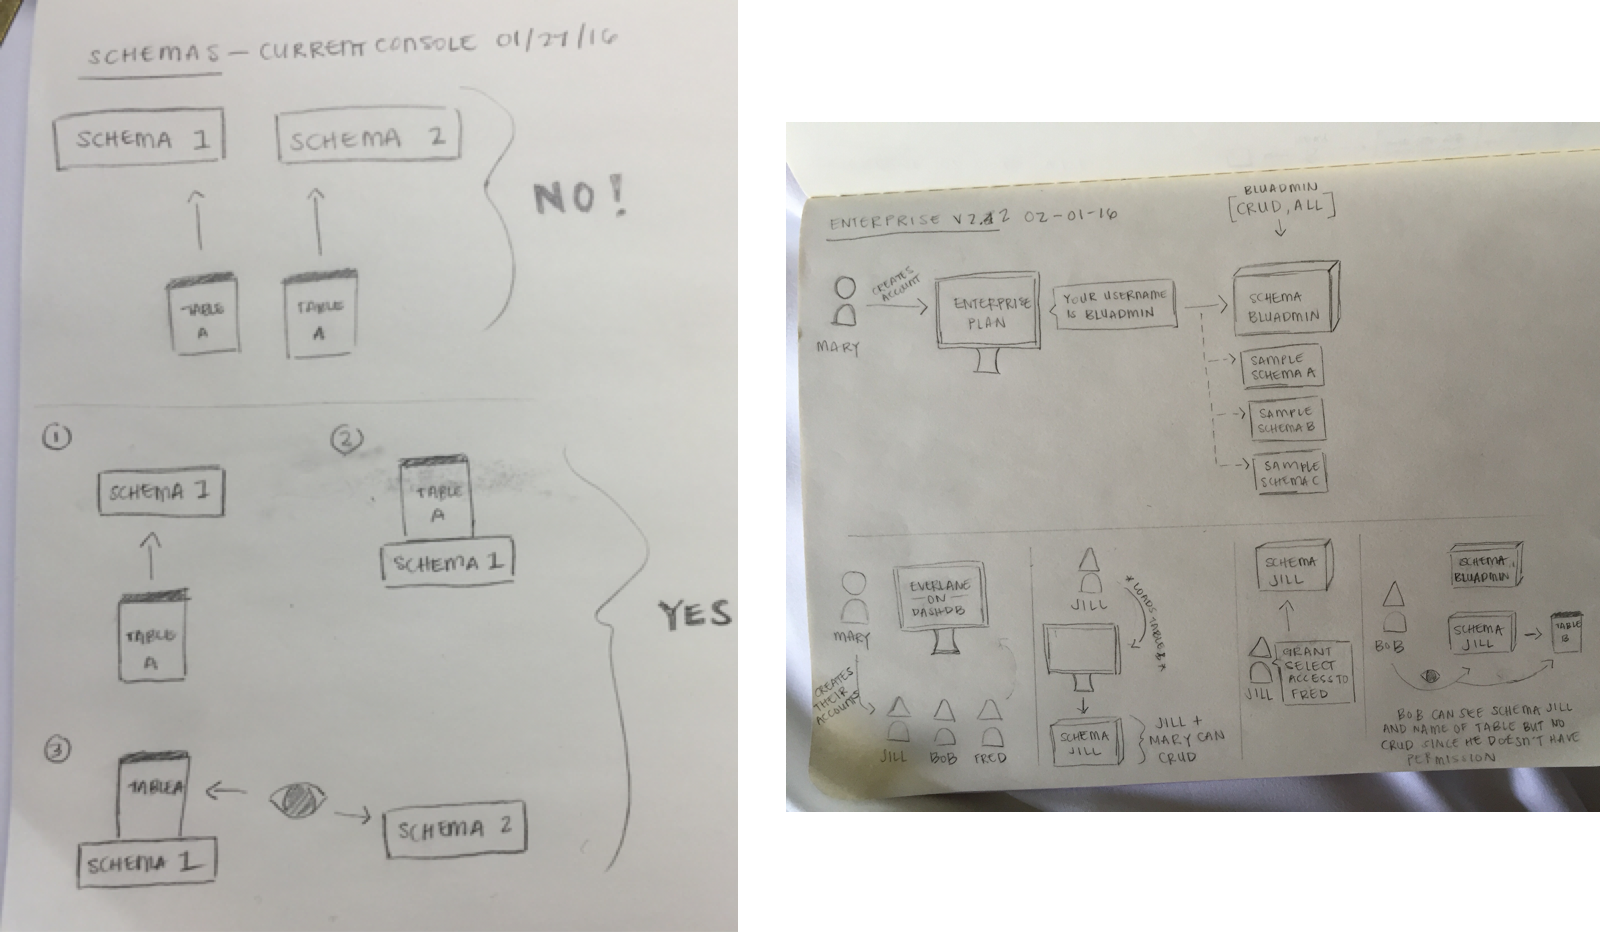 SCHEMAS — CURRENT CONSOLE 01/27/16
SCHEMA 1
SCHEMA 2
NO!
TABLE
A
TABLE
A
1
2
SCHEMA 1
TABLE
A
TABLE
A
SCHEMA 1
YES
3
TABLEA
SCHEMA 1
SCHEMA 2
ENTERPRISE V2.2 02-01-16
BLUADMIN
[CRUD, ALL]
MARY
CREATES
ACCOUNT
ENTERPRISE
PLAN
YOUR USERNAME
IS BLUADMIN
SCHEMA
BLUADMIN
SAMPLE
SCHEMA A
SAMPLE
SCHEMA B
SAMPLE
SCHEMA C
MARY
EVERLANE
—ON—
DASHDB
CREATES
THEIR
ACCOUNTS
JILL
BOB
FRED
JILL
*LOADS TABLE B*
SCHEMA
JILL
JILL +
MARY CAN
CRUD
SCHEMA
JILL
JILL
GRANT
SELECT
ACCESS TO
FRED
BOB
SCHEMA
BLUADMIN
SCHEMA
JILL
TABLE
B
BOB CAN SEE SCHEMA JILL
AND NAME OF TABLE BUT NO
CRUD SINCE HE DOESN'T HAVE
PERMISSION